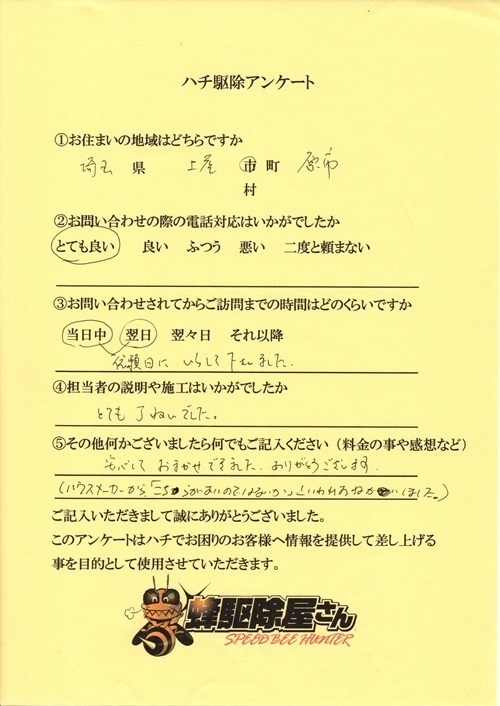 ハチ駆除アンケート
①お住まいの地域はどちらですか
埼玉 県 上尾 市 町 原市
村
②お問い合わせの際の電話対応はいかがでしたか
とても良い 良い ふつう 悪い 二度と頼まない
③お問い合わせされてからご訪問までの時間はどのくらいですか
当日中 翌日 翌々日 それ以降
依頼日に いらして下さいました。
④担当者の説明や施工はいかがでしたか
とても 丁ねいでした。
⑤その他何かございましたら何でもご記入ください（料金の事や感想など）
安心して おまかせできました。ありがとうございます。
(ハウスメーカーから、「こちらがあいのではないか」といわれ
ご記入いただきまして誠にありがとうございました。
このアンケートはハチでお困りのお客様へ情報を提供して差し上げる
事を目的として使用させていただきます。
蜂駆除屋さん
SPEED BEE HUNTER